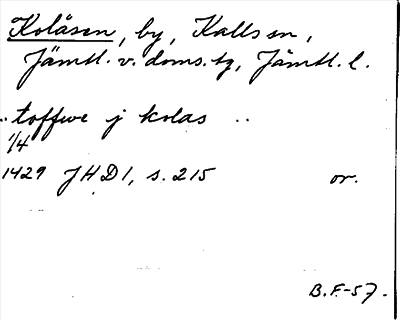 Kolåsen, by, Kalls sn,
Jämtl. v. doms. tg, Jämtl. l.
.. toffwe j kolas ..
1/4
1429 JHD 1, s. 215 or.
B.F.-57.